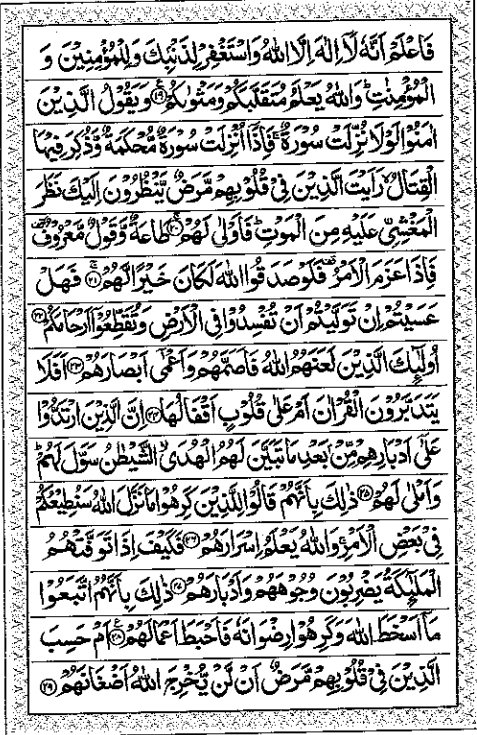 فَاعْلَمْ اَنَّهٗ لَاۤ اِلٰهَ اِلَّا اللّٰهُ وَاسْتَغْفِرْ لِذَنْۢبِكَ وَلِلْمُؤْمِنِيْنَ وَ
الْمُؤْمِنٰتِؕ وَاللّٰهُ يَعْلَمُ مُتَقَلَّبَكُمْ وَمَثْوٰىكُمْ ﴿۱۹﴾ وَيَقُوْلُ الَّذِيْنَ
اٰمَنُوْا لَوْلَا نُزِّلَتْ سُوْرَةٌ ۚ فَاِذَاۤ اُنْزِلَتْ سُوْرَةٌ مُّحْكَمَةٌ وَّذُكِرَ فِيْهَا
الْقِتَالُۙ رَاَيْتَ الَّذِيْنَ فِيْ قُلُوْبِهِمْ مَّرَضٌ يَّنْظُرُوْنَ اِلَيْكَ نَظَرَ
الْمَغْشِيِّ عَلَيْهِ مِنَ الْمَوْتِؕ فَاَوْلٰى لَهُمْ ﴿۲۰﴾ طَاعَةٌ وَّقَوْلٌ مَّعْرُوْفٌ
فَاِذَا عَزَمَ الْاَمْرُ فَلَوْ صَدَقُوا اللّٰهَ لَكَانَ خَيْرًا لَّهُمْ ﴿۲۱﴾ فَهَلْ
عَسَيْتُمْ اِنْ تَوَلَّيْتُمْ اَنْ تُفْسِدُوْا فِي الْاَرْضِ وَتُقَطِّعُوْۤا اَرْحَامَكُمْ ﴿۲۲﴾
اُولٰٓئِكَ الَّذِيْنَ لَعَنَهُمُ اللّٰهُ فَاَصَمَّهُمْ وَاَعْمٰۤى اَبْصَارَهُمْ ﴿۲۳﴾ اَفَلَا
يَتَدَبَّرُوْنَ الْقُرْاٰنَ اَمْ عَلٰى قُلُوْبٍ اَقْفَالُهَا ﴿۲۴﴾ اِنَّ الَّذِيْنَ ارْتَدُّوْا
عَلٰۤى اَدْبَارِهِمْ مِّنْۢ بَعْدِ مَا تَبَيَّنَ لَهُمُ الْهُدَىۙ الشَّيْطٰنُ سَوَّلَ لَهُمْؕ
وَاَمْلٰى لَهُمْ ﴿۲۵﴾ ذٰلِكَ بِاَنَّهُمْ قَالُوْا لِلَّذِيْنَ كَرِهُوْا مَا نَزَّلَ اللّٰهُ سَنُطِيْعُكُمْ
فِيْ بَعْضِ الْاَمْرِۖۚ وَاللّٰهُ يَعْلَمُ اِسْرَارَهُمْ ﴿۲۶﴾ فَكَيْفَ اِذَا تَوَفَّتْهُمُ
الْمَلٰٓئِكَةُ يَضْرِبُوْنَ وُجُوْهَهُمْ وَاَدْبَارَهُمْ ﴿۲۷﴾ ذٰلِكَ بِاَنَّهُمُ اتَّبَعُوْا
مَاۤ اَسْخَطَ اللّٰهَ وَكَرِهُوْا رِضْوَانَهٗ فَاَحْبَطَ اَعْمَالَهُمْ ﴿۲۸﴾ اَمْ حَسِبَ
الَّذِيْنَ فِيْ قُلُوْبِهِمْ مَّرَضٌ اَنْ لَّنْ يُّخْرِجَ اللّٰهُ اَضْغَانَهُمْ ﴿۲۹﴾